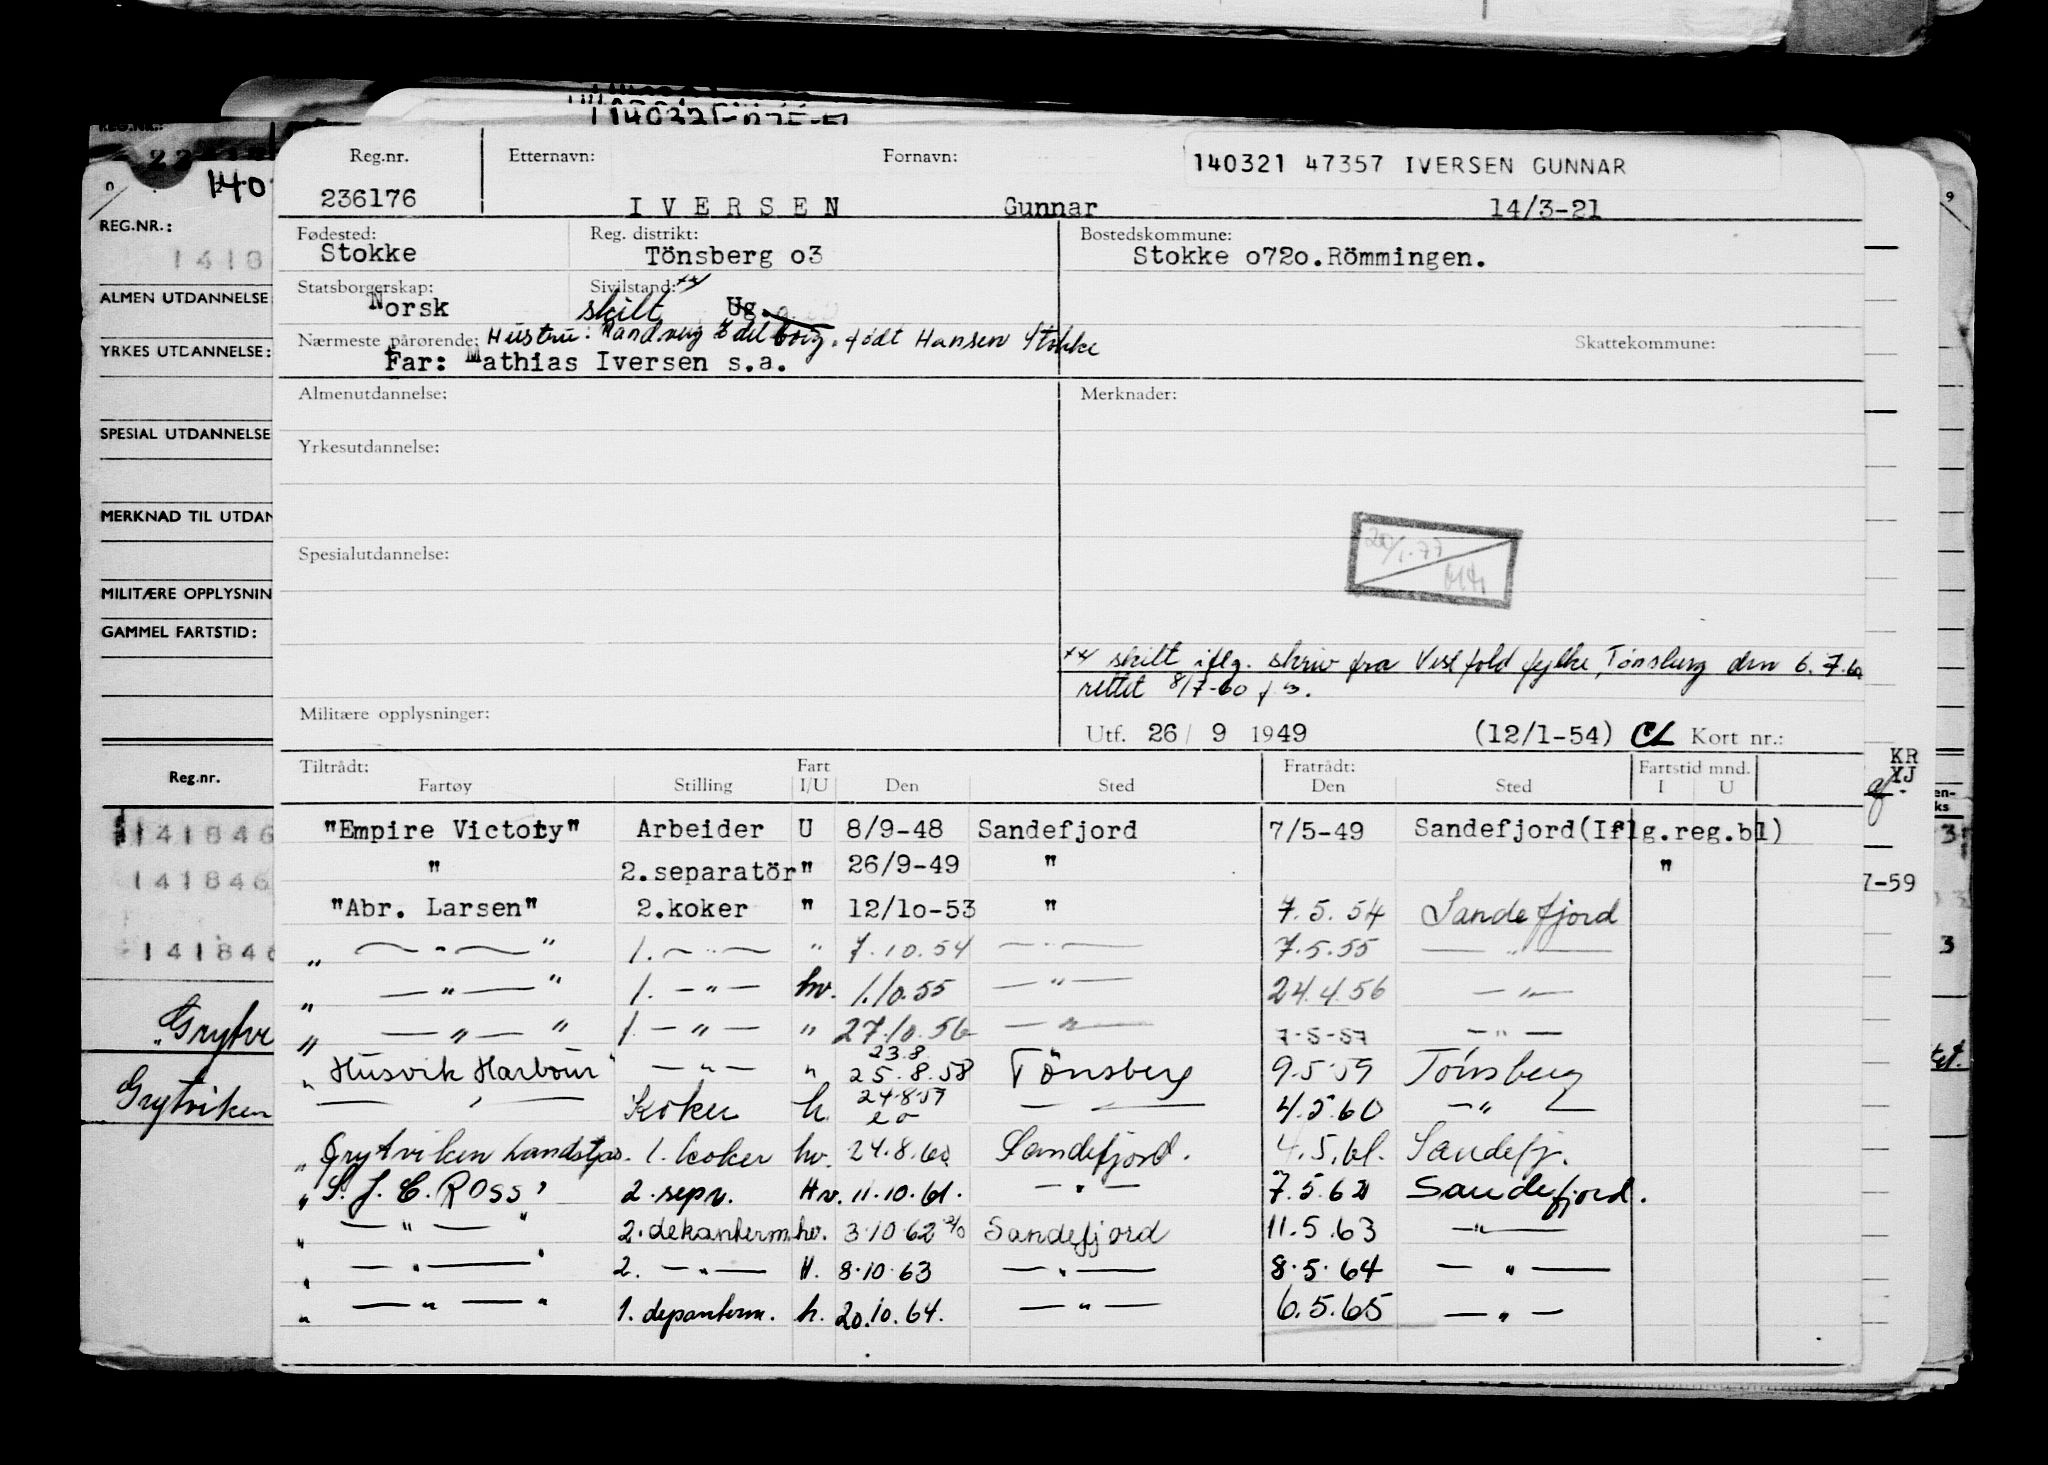 140321-
REG.NR.:
22
140
REG.NR.:
1418
ALMEN UTDANNELSE
YRKES UTDANNELSE:
SPESIAL UTDANNELSE
MERKNAD TIL UTDAN
MILITÆRE OPPLYSNIN
GAMMEL FARTSTID:
Reg.nr.
141846
141846
141846
"Grytv
Grytviken
Reg.nr. Etternavn: Fornavn: 140321 47357 IVERSEN GUNNAR
236176 I V E R S E N Gunnar 14/3-21
Fødested: Reg. distrikt: Bostedskommune:
Stokke Tönsberg o3 Stokke o72o.Römmingen.
Statsborgerskap: Sivilstand: xx/
Norsk skilt Ug.
Nærmeste pårørende: Hustru: Edelborg. født Hansen Stokke Skattekommune:
Far: Mathias Iversen s.a.
Almenutdannelse: Merknader:
Yrkesutdannelse:
Spesialutdannelse:
xx/ skilt iflg. skriv fra Vestfold fylke, Tønsberg den 6.7.60
rettet 8/7-60
Militære opplysninger:
Utf. 26/ 9 1949 (12/1-54) CL Kort nr.:
Tiltrådt: Fart Fratrådt: Fartstid mnd.
Fartøy Stilling I/U Den Sted Den Sted I U
"Empire Victory" Arbeider U 8/9-48 Sandefjord 7/5-49 Sandefjord(Iflg.reg.bl)
" 2.separatör " 26/9-49 " "
"Abr. Larsen" 2.koker " 12/1o-53 " 7.5.54 Sandefjord
" — " — " 1. — " — " 7.10.54 — " — 7.5.55 — " —
" — " — " 1. — " — hv. 1.10.55 — " — 24.4.56 — " —
" — " — " 1. — " — " 27.10.56 — " — 7-5-57 — " —
23.8.
" Husvik Harbour" — " — " 25.8.58 Tönsberg 9.5.59 Tönsberg
— " — Koker h. 24.8.59 — " — 4.5.60 — " —
" Grytviken landstas. 1. koker hv. 24.8.60 Sandefjord. 4.5.61. Sandefj.
" S. J. C. Ross" 2. sepr. Hv. 11.10.61. — " — 7.5.62 Sandefjord.
" — " — " 2. dekanterm. hv. 3.10.62 Sandefjord 11.5.63 — " —
" — " — " 2. — " — H. 8.10.63 — " — 8.5.64 — " —
" — " — " 1. depanterm. h. 20.10.64. — " — 6.5.65 — " —
9
KR
YJ
en-
ks
3
7-59
3
ket.